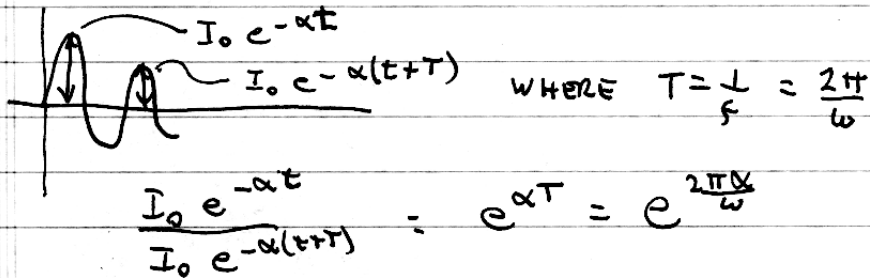 I₀ e^{-αt}
I₀ e^{-α(t+T)} WHERE T = 1/f = 2π/ω
I₀ e^{-αt} / I₀ e^{-α(t+T)} = e^{αT} = e^{2πα/ω}